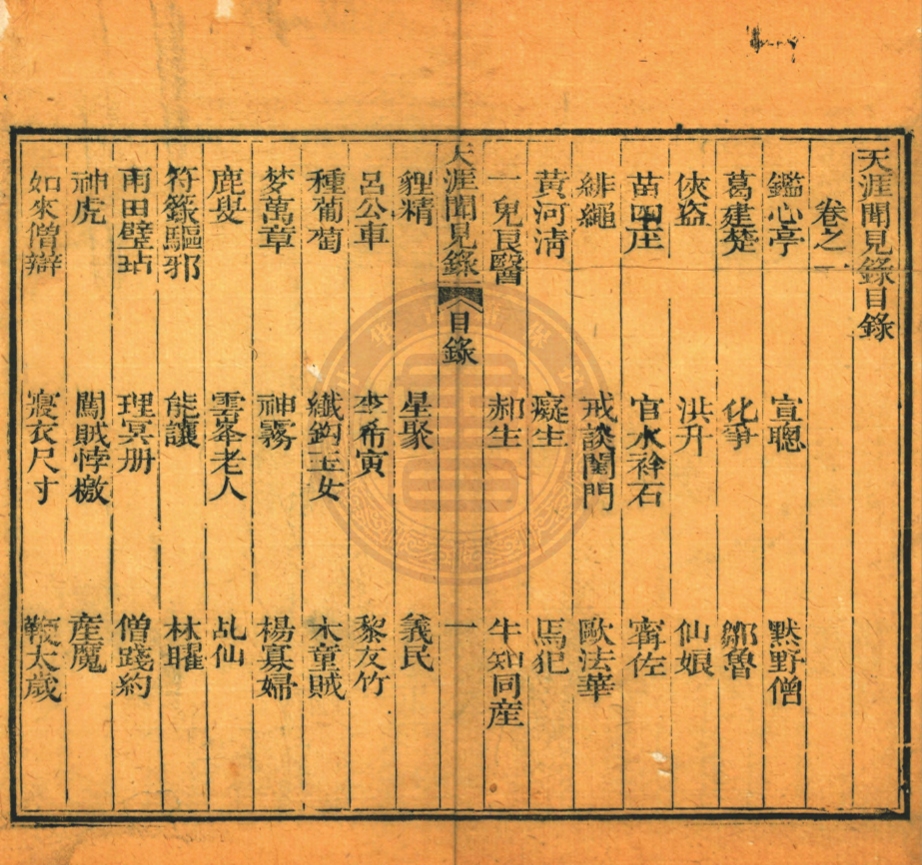 天涯聞見錄目錄
卷之一
鑑心亭 宣聰 默野僧
葛建楚 化爭 鄒魯
俠盗 洪升 仙娘
苗四庄 官水衿石 甯佐
緋繩 戒談閨門 歐法華
黃河淸 癡生 馬犯
一兒良醫 郝生 牛知同産
天涯聞見錄 目錄 一
貍精 星聚 義民
呂公車 李希寅 黎友竹
種葡萄 纖鈎玉女 木童賊
梦萬章 神霧 楊寡婦
鹿叟 雲峯老人 乩仙
符籙驅邪 能讓 林曜
甫田璧玷 理冥册 僧踐約
神虎 閩賊悖檄 産魔
如來僧辯 寢衣尺寸 鞭太歲